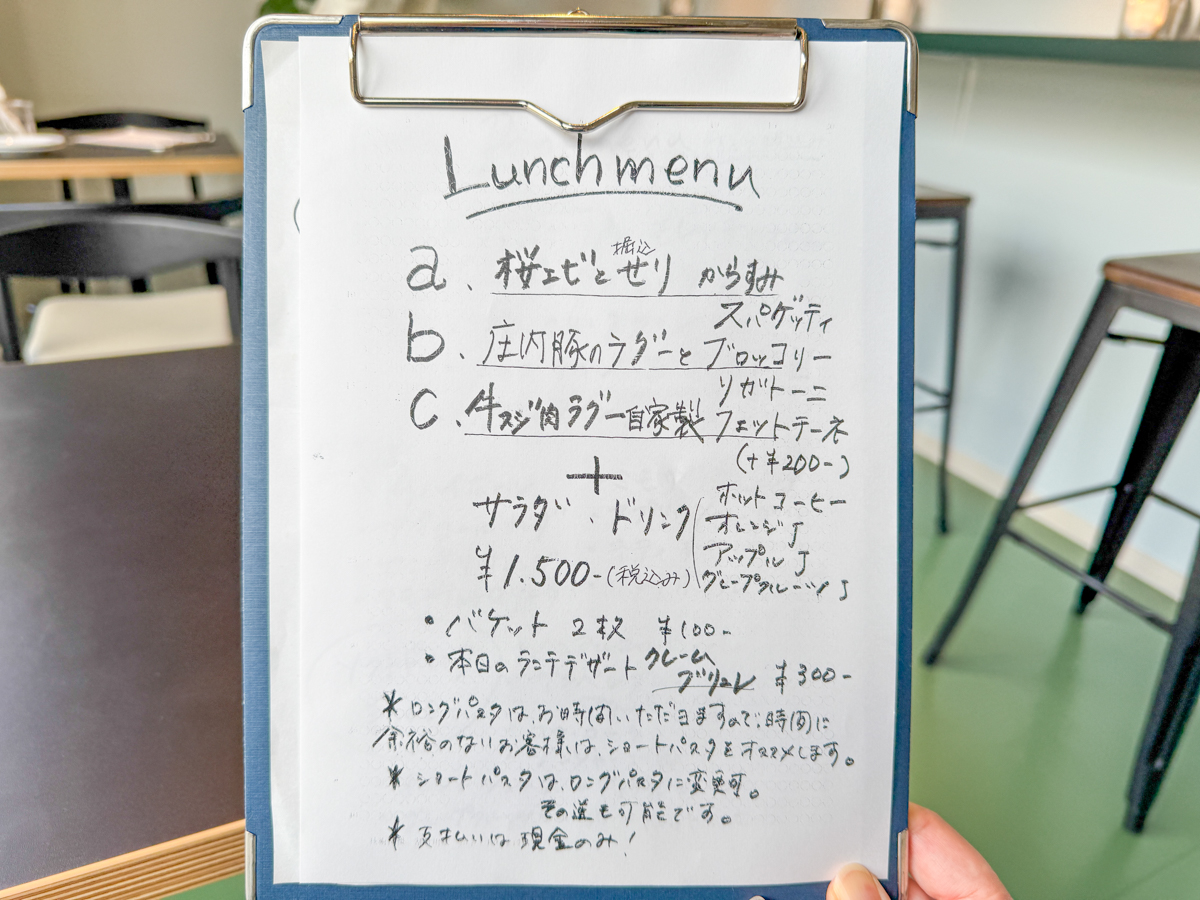 Lunch menu
a、桜エビと堀込せり からすみ
スパゲッティ
b、庄内豚のラグーとブロッコリー
リガトーニ
c、牛スジ肉ラグー自家製フェットチーネ
(+¥200-)
+
サラダ、ドリンク
ホットコーヒー
オレンジJ
アップルJ
グレープフルーツJ
¥1.500-(税込み)
・バケット 2枚 ¥100-
・本日のランチデザート クレーム
ブリュレ ¥300-
*ロングパスタは、お時間いただきますので、時間に
余裕のないお客様は、ショートパスタをオススメします。
*ショートパスタは、ロングパスタに変更可。
その逆も可能です。
*支払いは現金のみ!